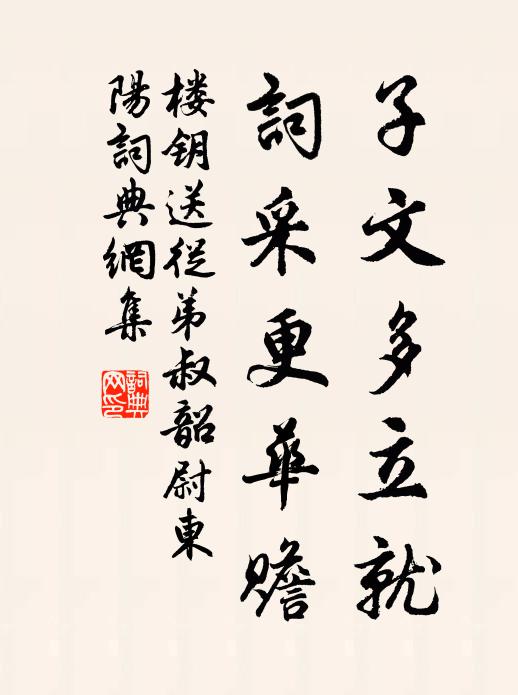 子文多立就
詞采更華贍
楼钥送從弟叔韶尉東
陽詞典網集
詞典网印